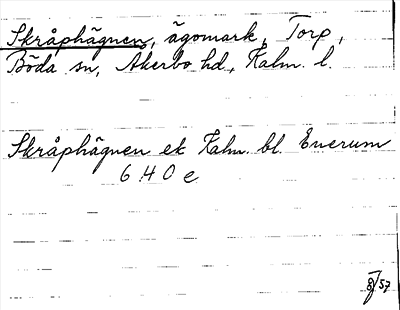 Skråphägnen, ägomark, Torp,
Böda sn, Åkerbo hd, Kalm. l.
Skråphägnen ek Kalm. bl. Enerum
6 40 e
57